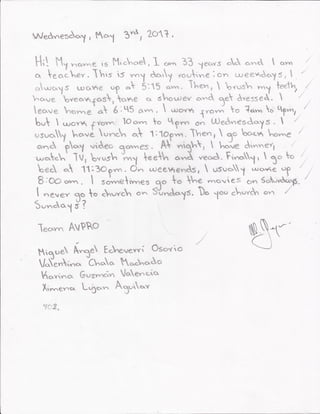 Wednesday, May 3rd, 2017.
Hi! My name is Michael, I am 33 years old and I am
a teacher. This is my daily routine: on weekdays, I
always wake up at 5:15 am. Then, I brush my teeth,
have breakfast, take a shower and get dressed. I
leave home at 6:45 am. I work from to 7am to 4pm,
but I work from 10am to 4pm on Wednesdays. I
usually have lunch at 1:10pm. Then, I go back home
and play video games. At night, I have dinner,
watch TV, brush my teeth and read. Finally, I go to
bed at 11:30pm. On weekends, I usually wake up
8:00 am, I sometimes go to the movies on Saturdays.
I never go to church on Sundays. Do you church on
Sundays?
Team AVPRO
Miguel Ángel Echeverri Osorio
Valentina Chala Machado
Karina Guzmán Valencia
Ximena Luján Aguilar
902.